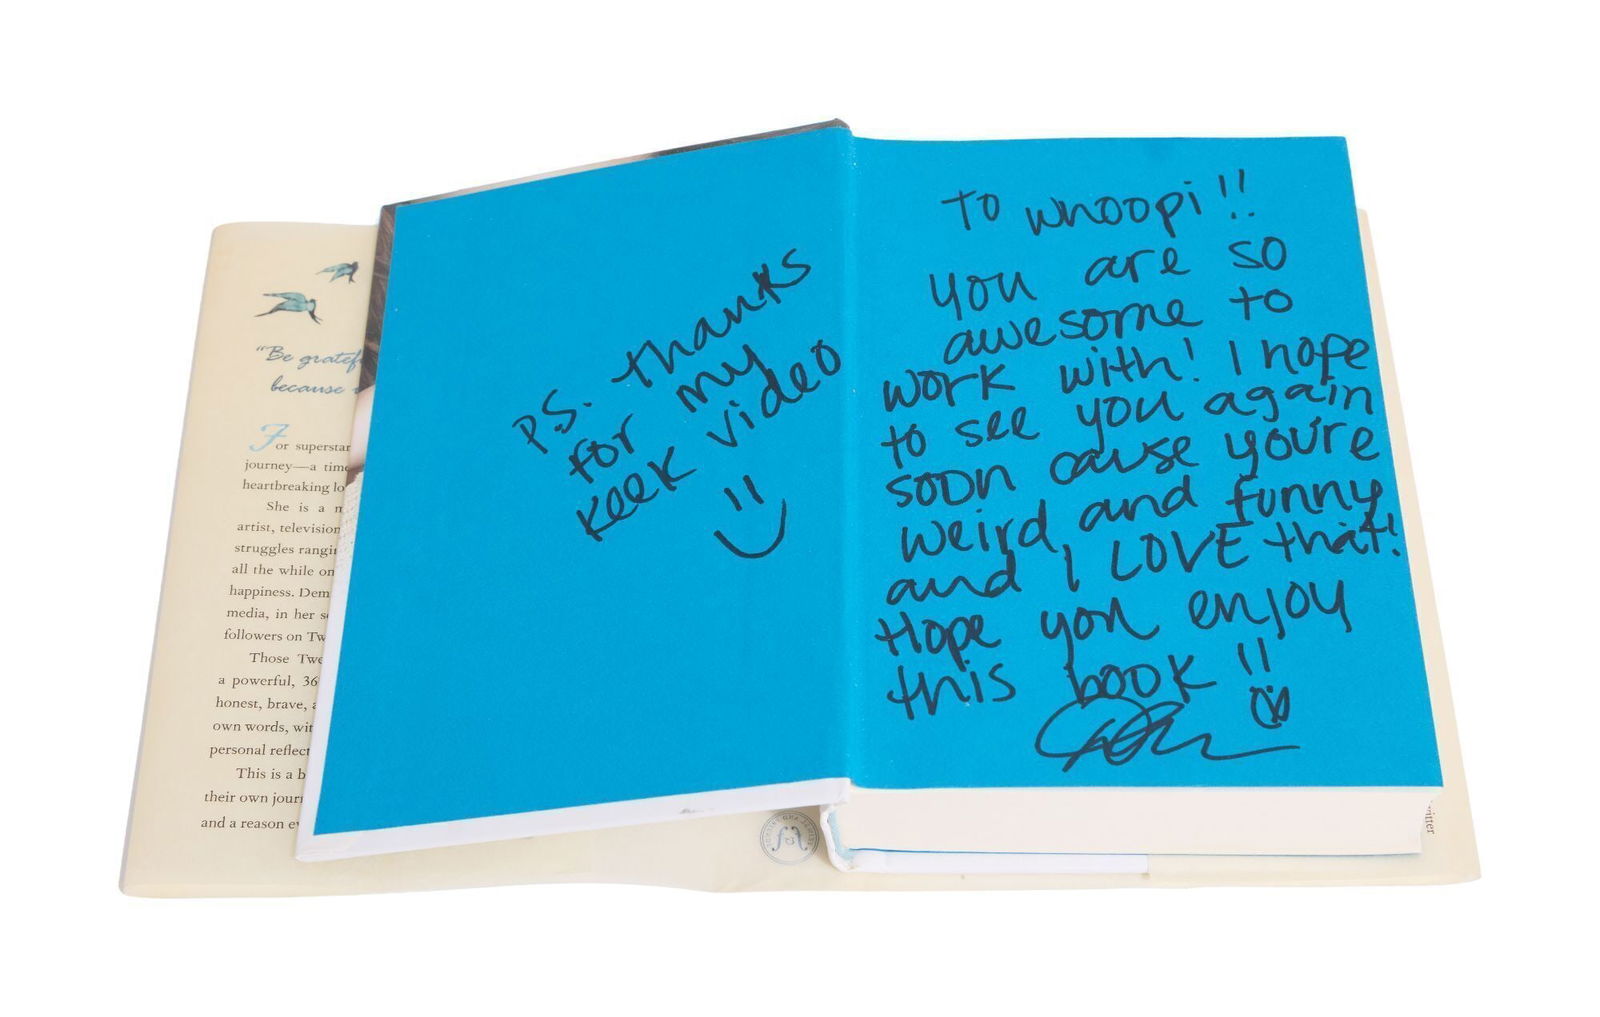 "Be gratef
because
For superstar
journey—a time
heartbreaking lo
She is a m
artist, television
struggles rangin
all the while on
happiness. Dem
media, in her s
followers on Tw
Those Twe
a powerful, 36
honest, brave, a
own words, wit
personal reflect
This is a b
their own journ
and a reason ev
P.S. thanks
for my
keek video
To Whoopi!!
You are so
awesome to
work with! I hope
to see you again
soon cause you're
weird and funny
and I LOVE that!
Hope you enjoy
this book!!
witter